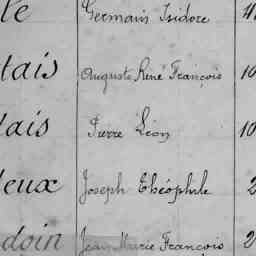 te Germain Isidore
tais Auguste René François 10
dais Pierre Léon 10
deux Joseph Théophile 2
doin Jean Marie François 2